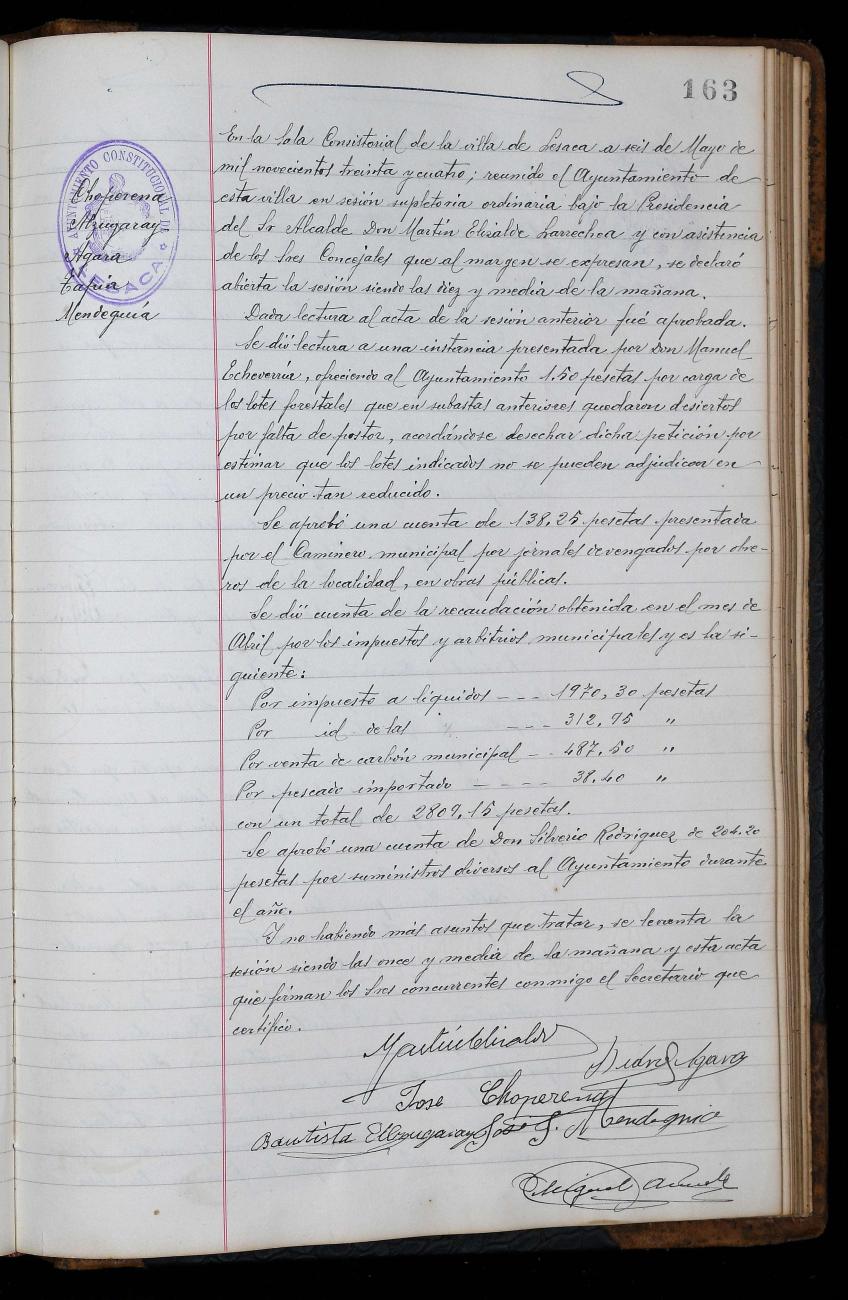 163
AYUNTAMIENTO CONSTITUCIONAL DE LESACA
Choperena
Elzugaray
Agara
Tapia
Mendeguía
En la Sala Consistorial de la villa de Lesaca a seis de Mayo de
mil novecientos treinta y cuatro; reunido el Ayuntamiento de
esta villa en sesión supletoria ordinaria bajo la Presidencia
del Sr Alcalde Don Martín Elizalde Larrechea y con asistencia
de los Sres Concejales que al margen se expresan, se declaró
abierta la sesión siendo las diez y media de la mañana.
Dada lectura al acta de la sesión anterior fué aprobada.
Se dió lectura a una instancia presentada por Don Manuel
Echeverria, ofreciendo al Ayuntamiento 1.50 pesetas por carga de
los lotes forestales que en subastas anteriores quedaron desiertos
por falta de postor, acordándose desechar dicha petición por
estimar que los lotes indicados no se pueden adjudicar en
un precio tan reducido.
Se aprobó una cuenta de 138,25 pesetas presentada
por el Caminero municipal por jornales devengados por obre-
ros de la localidad, en obras públicas.
Se dió cuenta de la recaudación obtenida en el mes de
Abril por los impuestos y arbitrios municipales y es la si-
guiente:
Por impuesto a líquidos --- 1970,30 pesetas
Por id de las " --- 312,95 "
Por venta de carbón municipal -- 487,50 "
Por pescado importado ---- 38,40 "
con un total de 2809,15 pesetas.
Se aprobó una cuenta de Don Silverio Rodriguez de 204.20
pesetas por suministros diversos al Ayuntamiento durante
el año.
Y no habiendo más asuntos que tratar, se levanta la
sesión siendo las once y media de la mañana y esta acta
que firman los Sres concurrentes conmigo el Secretario que
certifico.
Martín Elizalde
Pedro Agara
Jose Choperena
Bautista Elzugaray José J. Mendeguia
Miguel